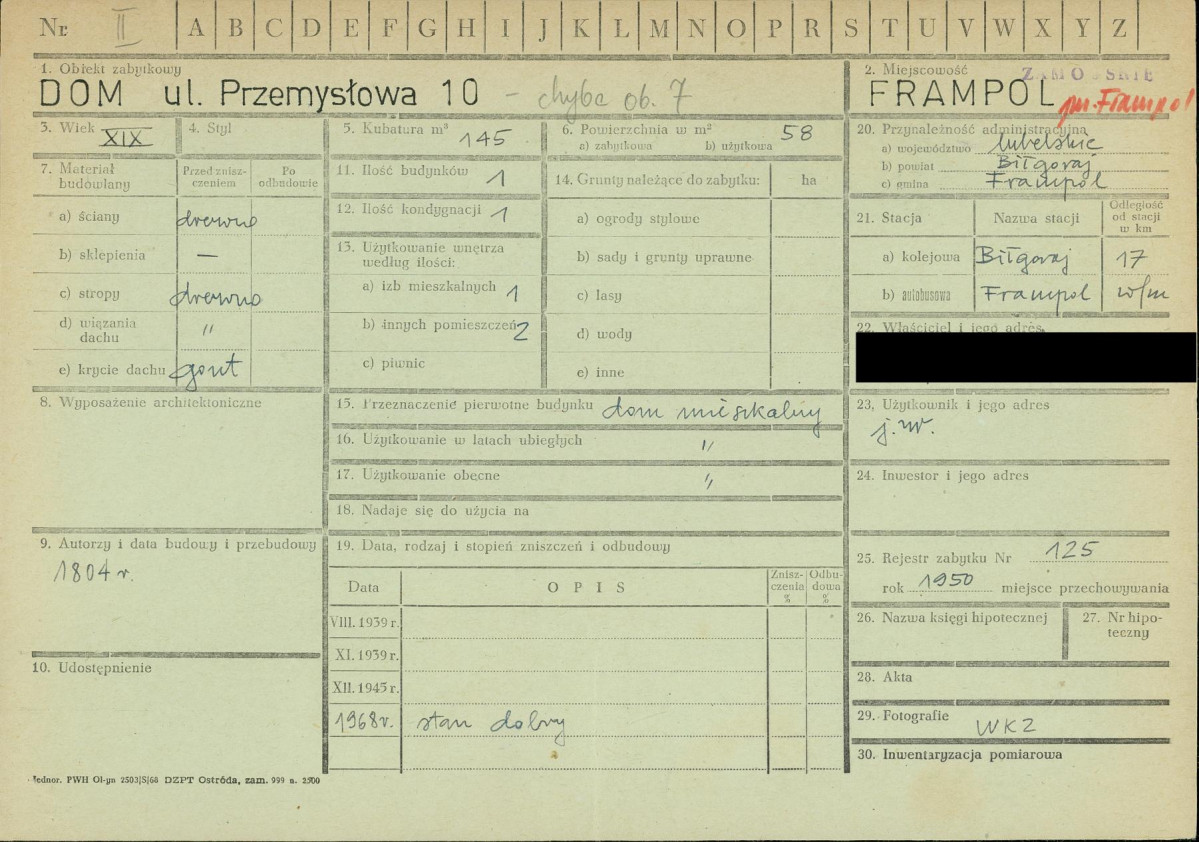 Nr. II A B C D E F G H I J K L M N O P R S T U V W X Y Z
1. Obiekt zabytkowy
DOM ul. Przemysłowa 10 – chyba ob. 7
2. Miejscowość
FRAMPOL gm. Frampol
3. Wiek XIX
4. Styl
5. Kubatura m³ 145
6. Powierzchnia w m² 58
a) zabytkowa b) użytkowa
20. Przynależność administracyjna
a) województwo lubelskie
b) powiat Biłgoraj
c) gmina Frampol
7. Materiał budowlany
Przed zniszczeniem
Po odbudowie
a) ściany drewno
b) sklepienia —
c) stropy drewno
d) wiązania dachu "
e) krycie dachu gont
11. Ilość budynków 1
12. Ilość kondygnacji 1
13. Użytkowanie wnętrza według ilości:
a) izb mieszkalnych 1
b) innych pomieszczeń 2
c) piwnic
14. Grunty należące do zabytku: ha
a) ogrody stylowe
b) sady i grunty uprawne
c) lasy
d) wody
e) inne
21. Stacja
Nazwa stacji
Odległość od stacji w km
a) kolejowa Biłgoraj 17
b) autobusowa Frampol w/m
22. Właściciel i jego adres
8. Wyposażenie architektoniczne
15. Przeznaczenie pierwotne budynku dom mieszkalny
16. Użytkowanie w latach ubiegłych "
17. Użytkowanie obecne "
18. Nadaje się do użycia na
23. Użytkownik i jego adres
j. w.
24. Inwestor i jego adres
9. Autorzy i data budowy i przebudowy
1804 r.
10. Udostępnienie
19. Data, rodzaj i stopień zniszczeń i odbudowy
Data
OPIS
Zniszczenia %
Odbudowa %
VIII. 1939 r.
XI. 1939 r.
XII. 1945 r.
1968 r. stan dobry
25. Rejestr zabytku Nr 125
rok 1950 miejsce przechowywania
26. Nazwa księgi hipotecznej
27. Nr hipoteczny
28. Akta
29. Fotografie WKZ
30. Inwentaryzacja pomiarowa
Jednor. PWH Ol-yn 2503/S/68 DZPT Ostróda, zam. 999 n. 2500